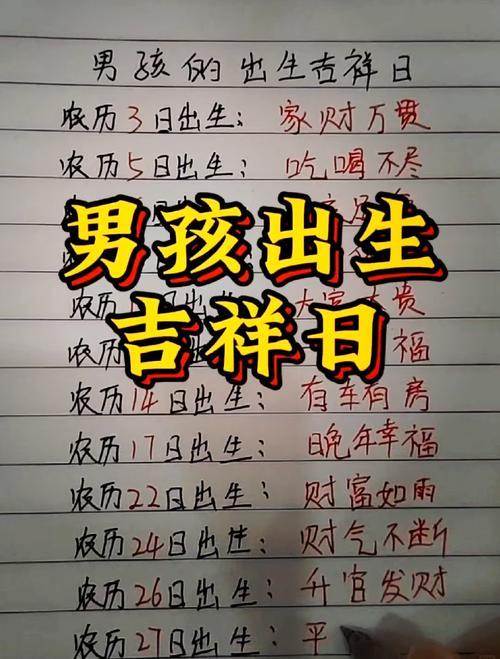 男孩的出生吉祥日
农历3日出生：家财万贯
农历5日出生：吃喝不尽
男孩出生
吉祥日
农历14日出生：有车有房
农历17日出生：晚年幸福
农历22日出生：财富如雨
农历24日出生：财气不断
农历26日出生：升官发财
农历27日出生：平